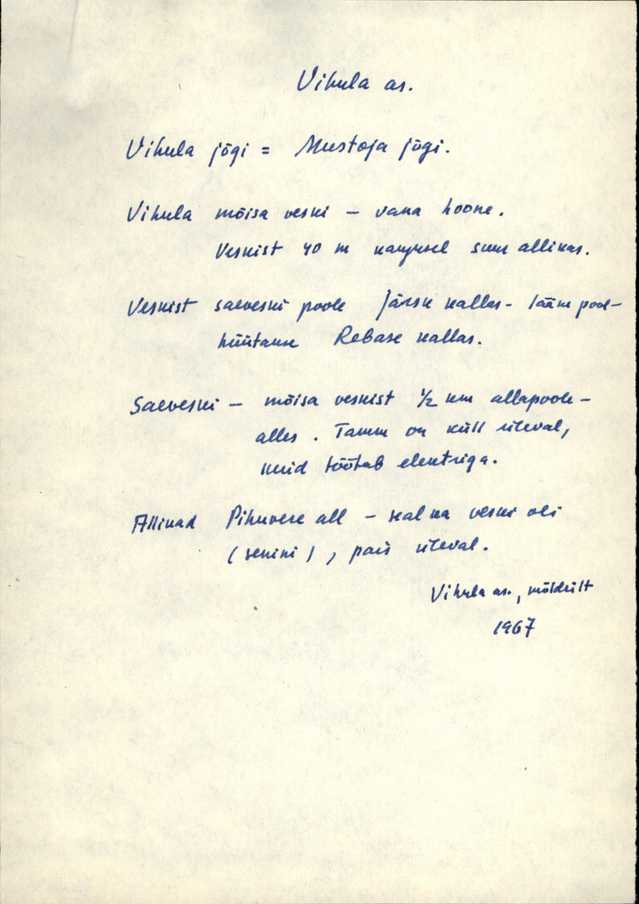 Vihula as.
Vihula jõgi = Mustoja jõgi.
Vihula mõisa veski – vana hoone.
Veskist 40 m kaugusel suur allikas.
Veskist saeveski poole Järsu kallas – lääne pool –
hüütakse Rebase kallas.
Saeveski – mõisa veskist 1/2 km allapoole –
alles. Tamm on küll üleval,
kuid töötab elektriga.
Allikad Pihuvere all – seal ka veski oli
(senini), pais üleval.
Vihula as., möldrilt
1967